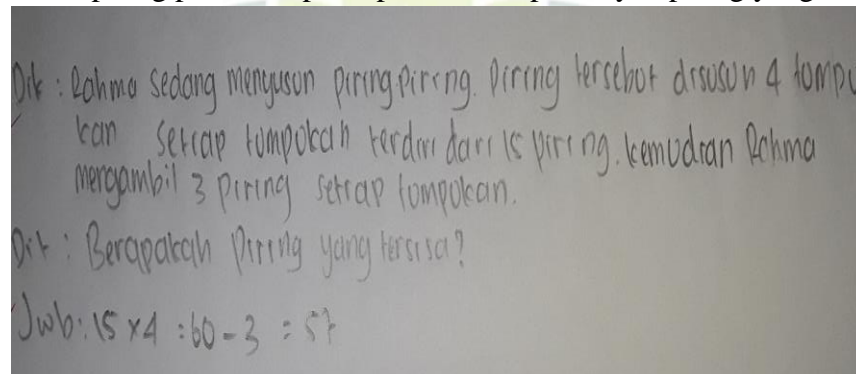 Dik : Rahma sedang menyusun piring piring. Piring tersebut disusun 4 tumpu
kan setiap tumpukan terdiri dari 15 piring. kemudian Rahma
mengambil 3 piring setiap tumpukan.
Dit : Berapakah Piring yang tersisa?
Jwb : 15 x 4 = 60 - 3 = 57